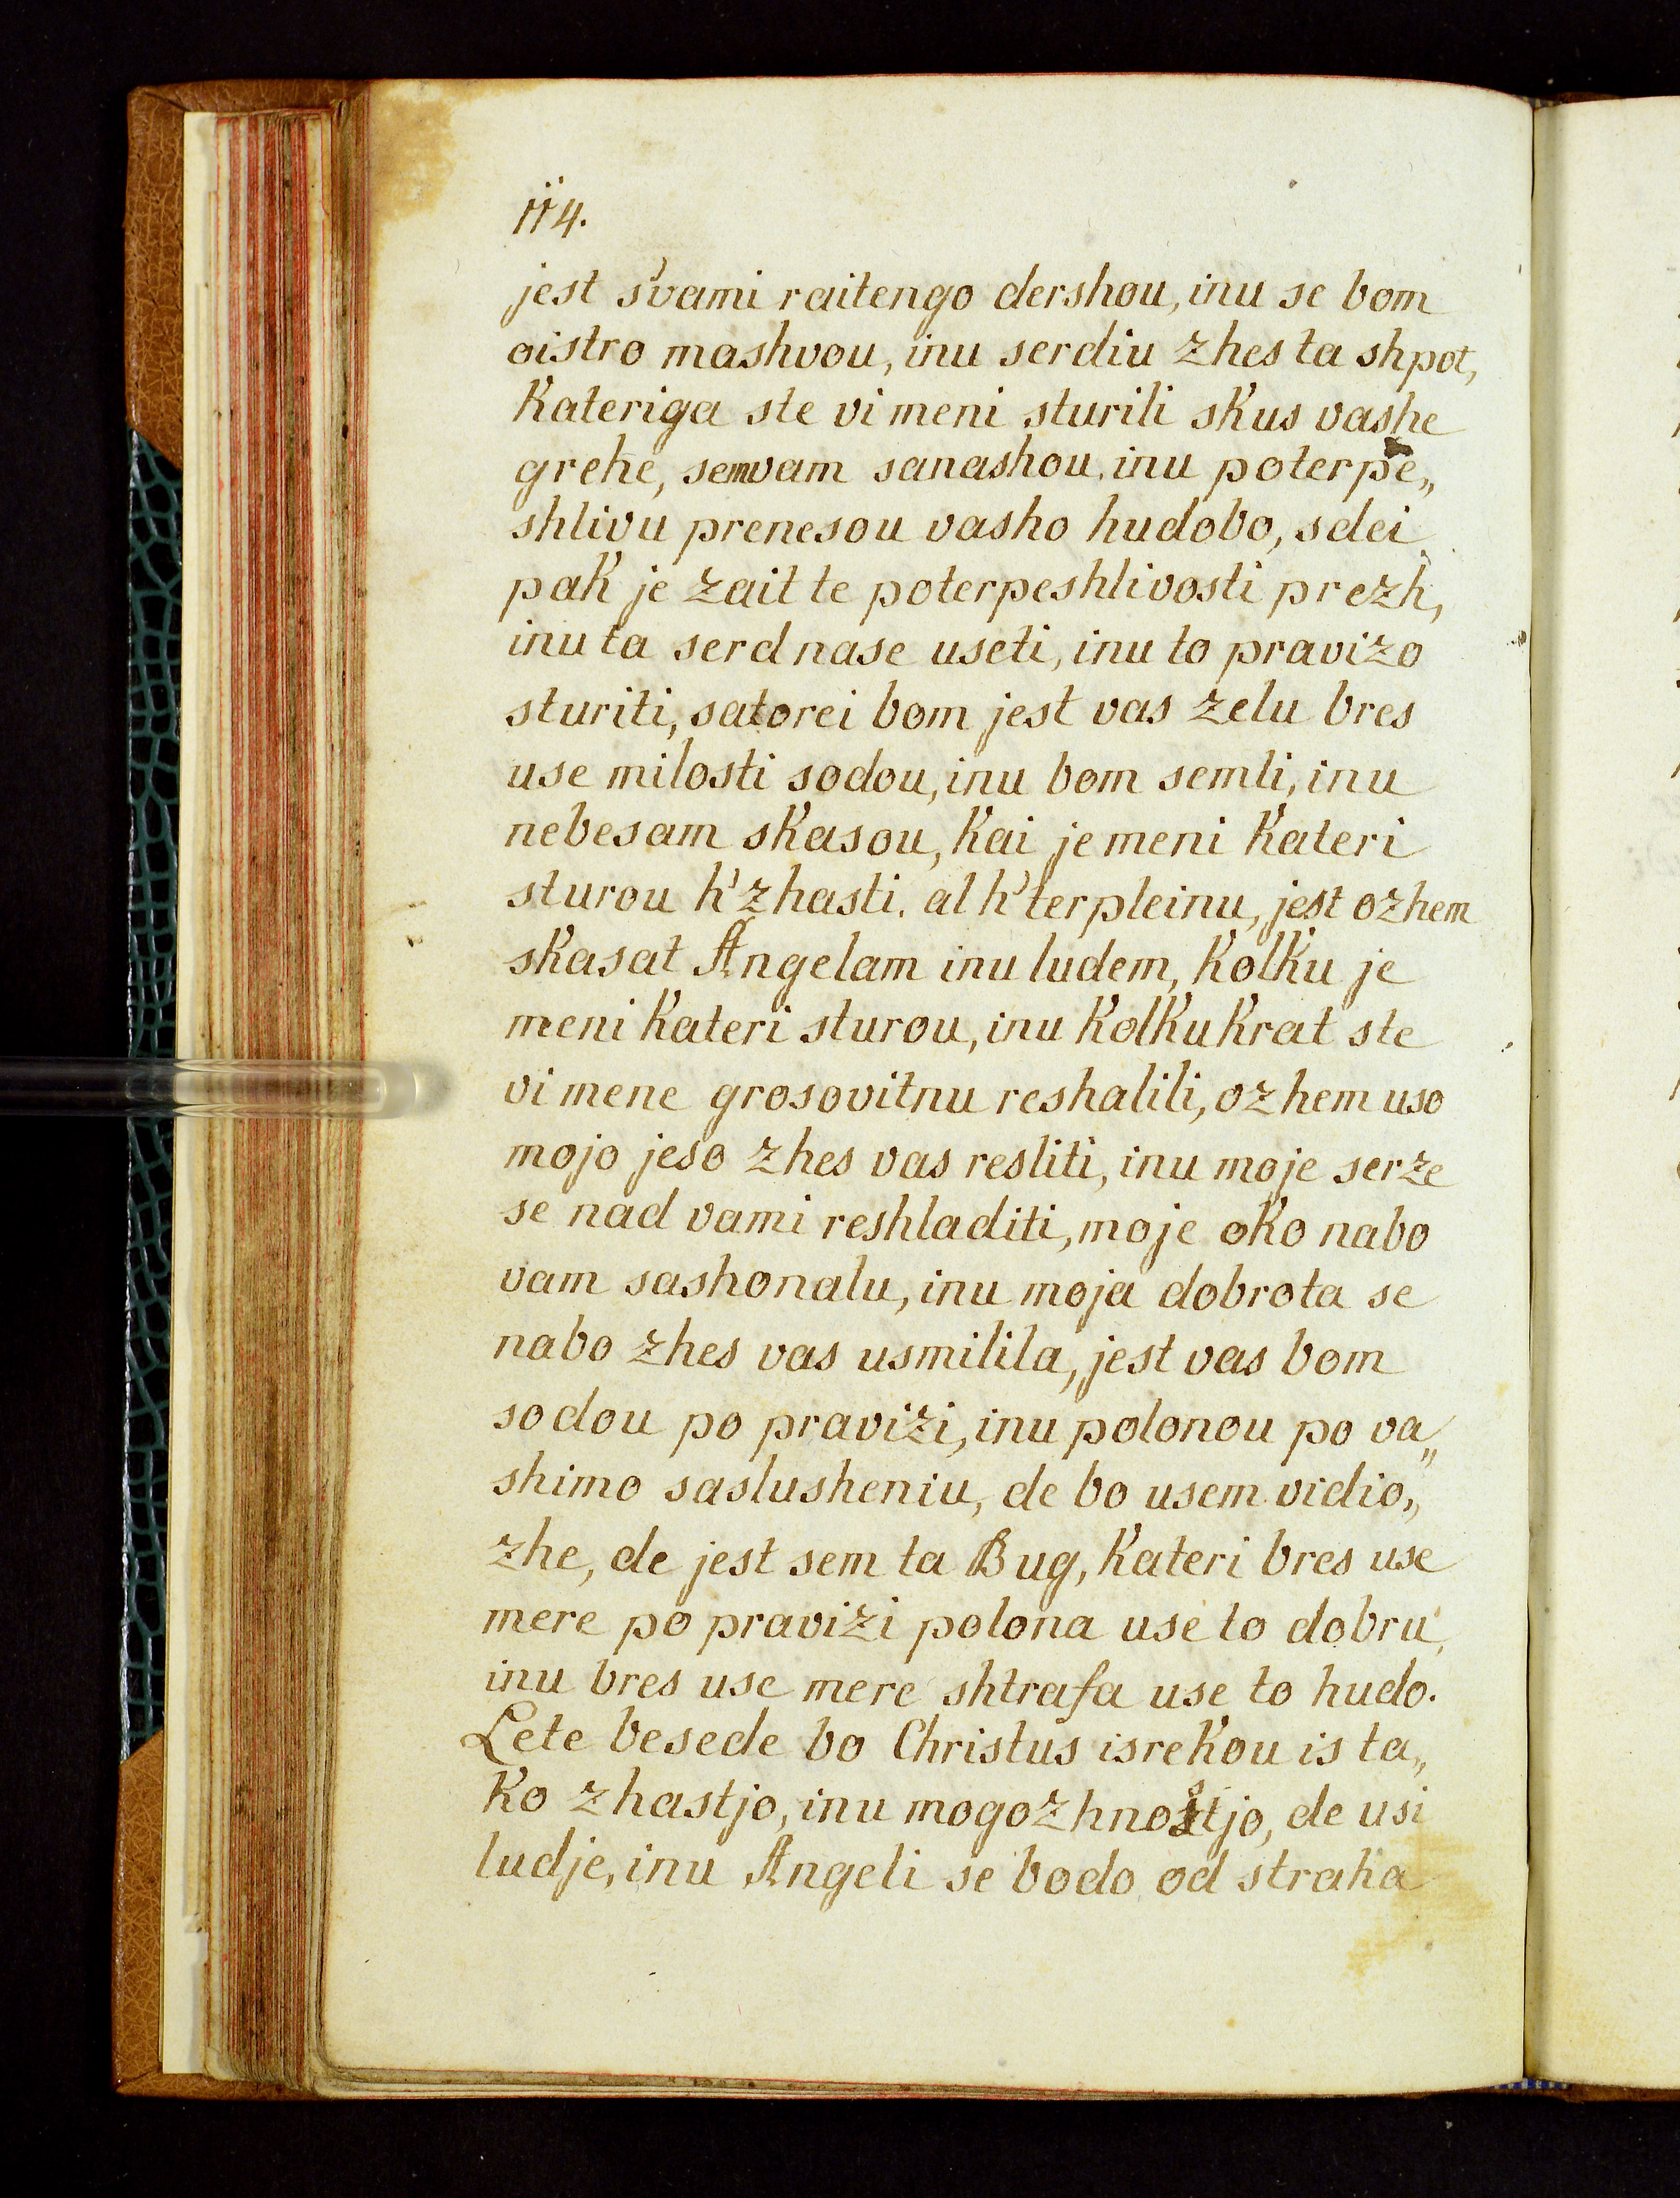 114.
jest s'vami raitengo dershou, inu se bom
oistro mashvou, inu serdiu zhes ta shpot,
kateriga ste vi meni sturili skus vashe
grehe, semvam sanashou, inu poterpe„
shlivu prenesou vasho hudobo, sdei
pak je zait te poterpeshlivosti prezh,
inu ta serd nase useti, inu to pravizo
sturiti, satorei bom jest vas zelu bres
use milosti sodou, inu bom semli, inu
nebesam skasou, kai je meni kateri
sturou h' zhasti. al h' terpleinu, jest ozhem
skasat Angelam inu ludem, kolku je
meni kateri sturou, inu kolku krat ste
vi mene grosovitnu reshalili, ozhem uso
mojo jeso zhes vas resliti, inu moje serze
se nad vami reshladiti, moje oko nabo
vam sashonalu, inu moja dobrota se
nabo zhes vas usmilila, jest vas bom
sodou po pravizi, inu polonou po va„
shimo saslusheniu, de bo usem vidio„
zhe, de jest sem ta Bug, kateri bres use
mere po pravizi polona use to dobru,
inu bres use mere shtrafa use to hudo.
Lete besede bo Christus isrekou is ta„
ko zhastjo, inu mogozhnostjo, de usi
ludje, inu Angeli se bodo od straha